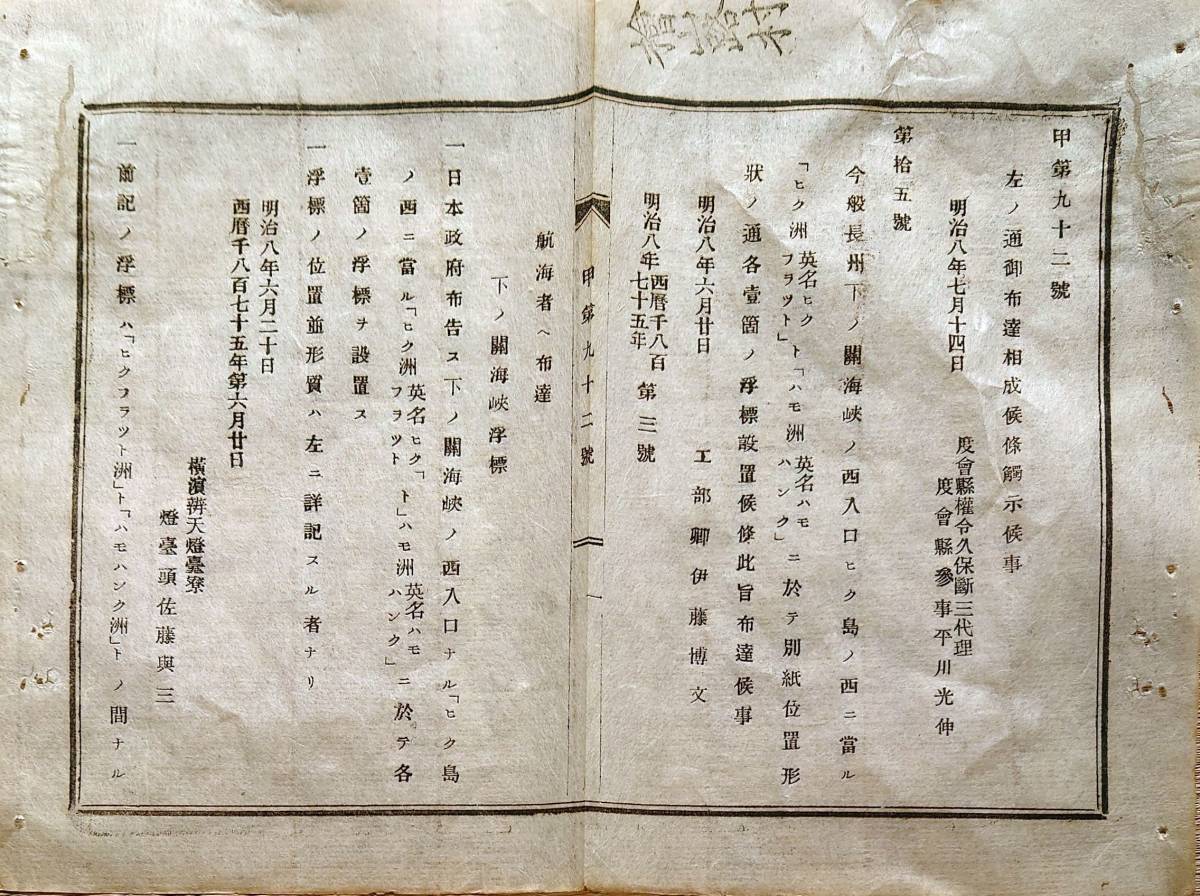 甲第九十二號
左ノ通御布達相成候條觸示候事
明治八年七月十四日
度會縣權令久保斷三代理
度會縣參事平川光伸
第拾五號
今般長州下ノ關海峽ノ西入口ヒク島ノ西ニ當ル
「ヒク洲 英名ヒクフラット」ト「ハモ洲 英名ハモハンク」ニ於テ別紙位置形
狀ノ通各壹箇ノ浮標設置候條此旨布達候事
明治八年六月廿日
工部卿伊藤博文
明治八年 西曆千八百七十五年 第三號
甲第九十二號
一
航海者ヘ布達
下ノ關海峽浮標
一日本政府布告ス下ノ關海峽ノ西入口ナル「ヒク島
ノ西ニ當ル「ヒク洲 英名ヒク「フヲツト ト」ハモ洲 英名ハモハンク」ニ於テ各
壹箇ノ浮標ヲ設置ス
一浮標ノ位置並形質ハ左ニ詳記スル者ナリ
明治八年六月二十日
西曆千八百七十五年第六月廿日
橫濱辨天燈臺寮
燈臺頭佐藤與三
一前記ノ浮標ハ「ヒクフラツト洲」ト「ハモハンク洲」トノ間ナル